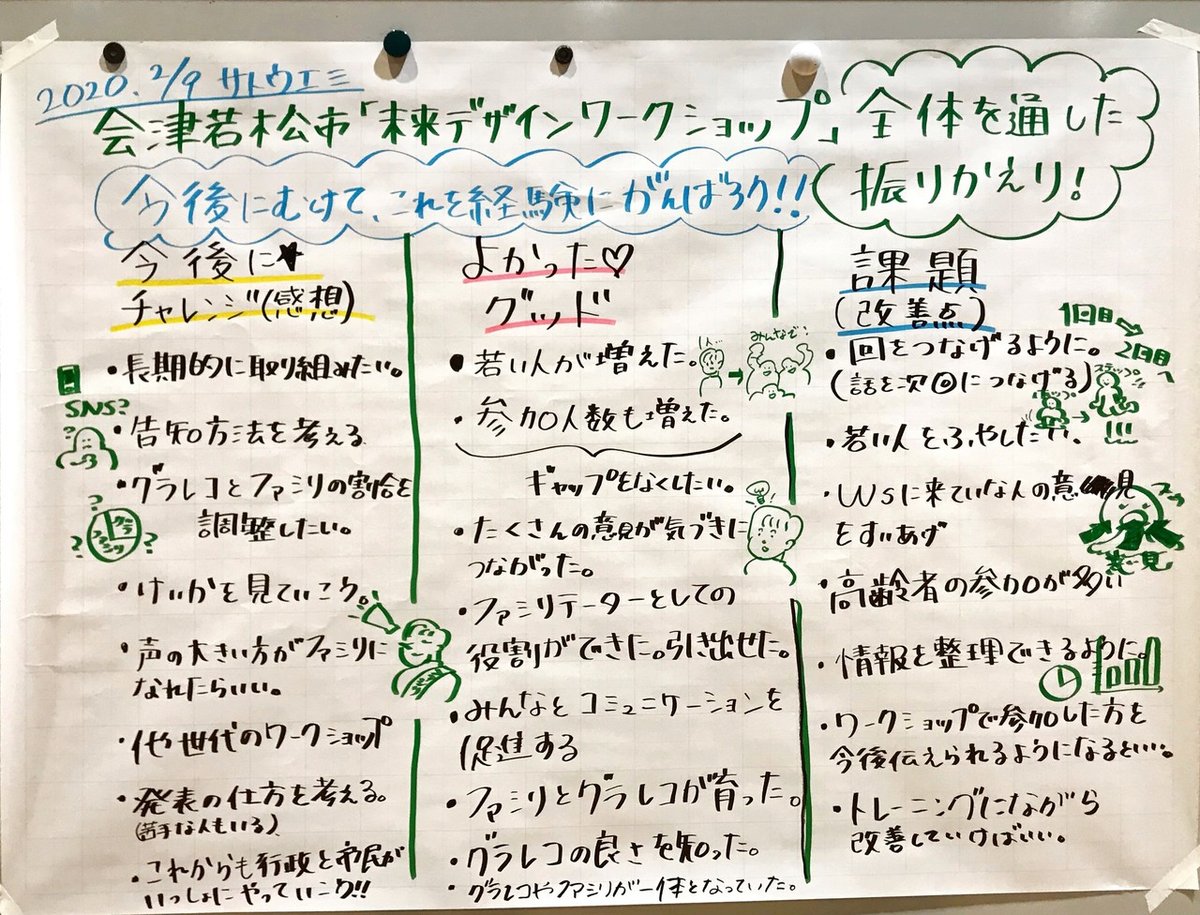 2020.2/9 サトウエミ
会津若松市「未来デザインワークショップ」
全体を通した
振りかえり!
今後にむけて、これを経験にがんばろう!!
今後に★
チャレンジ(感想)
・長期的に取り組みたい。
SNS?
・告知方法を考える
・グラレコとファシリの割合を
調整したい。
グラ
ファシリ
・けいかを見ていこう。
・声の大きい方がファシリに
なれたらいい。
・他世代のワークショップ
・発表の仕方を考える。
(苦手な人もいる)
・これからも行政と市民が
いっしょにやっていこう!!
よかった♡
グッド
・若い人が増えた。
1人…
みんなで!
・参加人数も増えた。
ギャップをなくしたい。
・たくさんの意見が気づきに
つながった。
・ファシリテーターとしての
役割ができた。引き出せた。
・みんなとコミュニケーションを
促進する
・ファシリとグラレコが育った。
・グラレコの良さを知った。
・グラレコやファシリが一体となっていた。
課題
(改善点)
1回目→
2回目へ
・回をつなげるように。
(話を次回につなげる)
ホップ
ステップ
・若い人をふやしたい、!!!
・WSに来ていな人の意見
をすいあげ
意見
・高齢者の参加が多い
・情報を整理できるように。
・ワークショップで参加した方を
今後伝えられるようになるといい。
・トレーニングにながら
改善していけばいい。